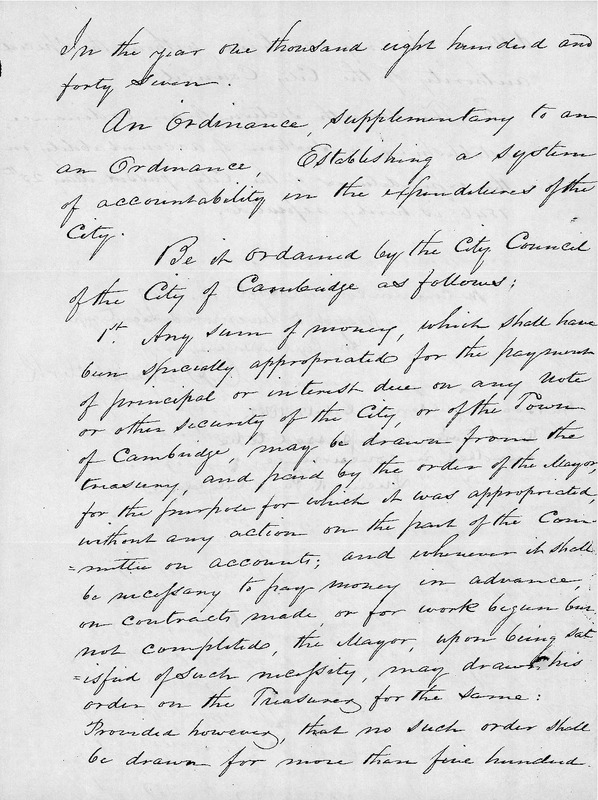 In the year one thousand eight hundred and
forty seven.
An Ordinance, supplementary to an
an Ordinance, Establishing a system
of accountability in the expenditures of the
City.
Be it ordained by the City Council
of the City of Cambridge as follows;
1st. Any sum of money, which shall have
been specially appropriated for the payment
of principal or interest due on any note
or other security of the City, or of the Town
of Cambridge, may be drawn from the
treasury, and paid by the order of the Mayor,
for the purpose for which it was appropriated,
without any action on the part of the Com-
=mittee on accounts; and whenever it shall
be necessary to pay money in advance
on contracts made, or for work begun but
not completed, the Mayor, upon being sat
=isfied of such necessity, may draw his
order on the Treasurer for the same:
Provided however, that no such order shall
be drawn for more than five hundred